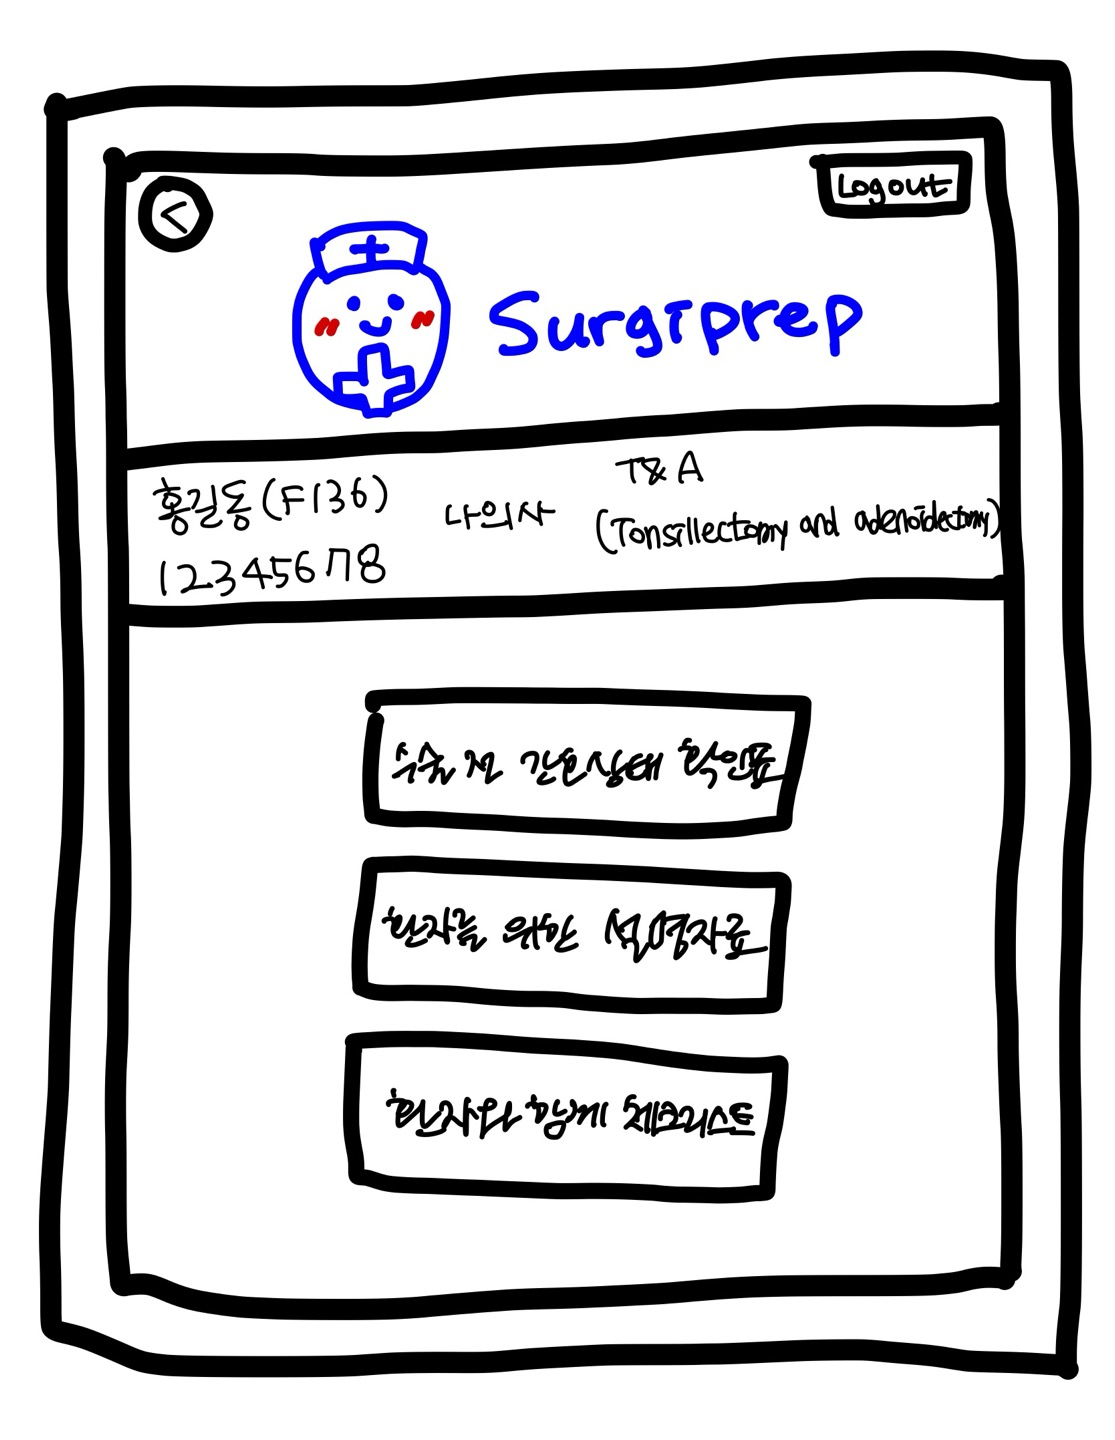 <
Logout
Surgiprep
홍길동(F136)
12345678
나의사
T&A
(Tonsillectomy and adenoidectomy)
수술 전 간호상태 확인표
환자를 위한 설명자료
환자와 함께 체크리스트